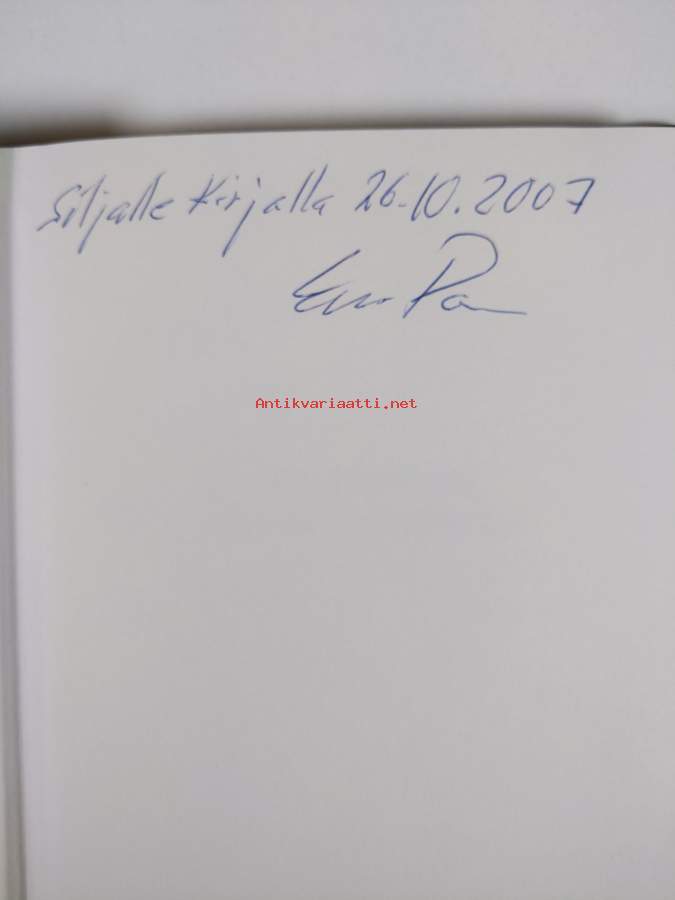 Siljalle Kirjalla 26.10.2007
Antikvariaatti.net